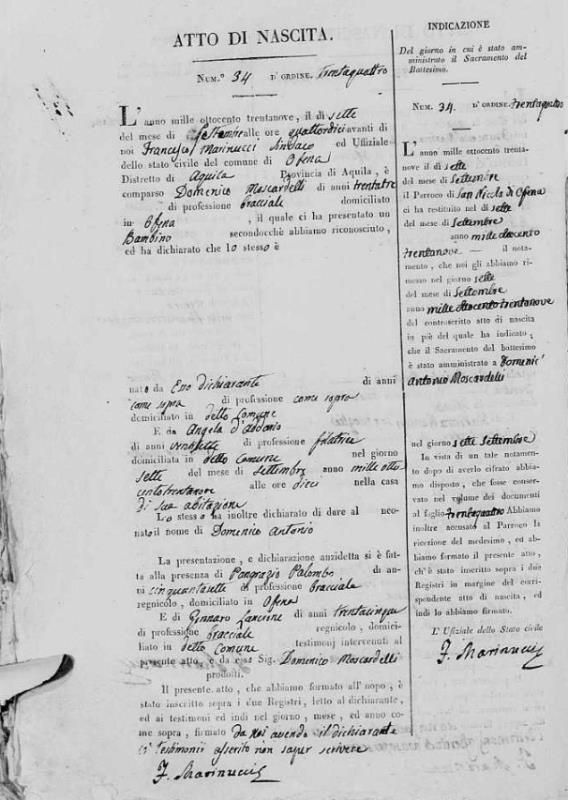 ATTO DI NASCITA.
NUM.º 34 D' ORDINE. trentaquattro
L'anno mille ottocento trentanove, il dì sette
del mese di Settembre alle ore quattordici avanti di
noi Francesco Marinucci Sindaco ed Uffiziale
dello stato civile del comune di Ofena
Distretto di Aquila Provincia di Aquila, è
comparso Domenico Moscardelli di anni trentatre
di professione bracciale domiciliato
in Ofena, il quale ci ha presentato un
Bambino secondocchè abbiamo riconosciuto,
ed ha dichiarato che lo stesso è
nato da Esso dichiarante di anni
come sopra di professione come sopra
domiciliato in detto Comune
E da Angela d'Addario
di anni ventisette di professione filatrice
domiciliata in detto Comune nel giorno
sette del mese di Settembre anno mille otto
centotrentanove alle ore dieci nella casa
di sua abitazione
Lo stesso ha inoltre dichiarato di dare al neo-
nato il nome di Domenico Antonio
La presentazione, e dichiarazione anzidetta si è fat-
ta alla presenza di Pangrazio Palombo di an-
ni cinquantasette di professione bracciale
regnicolo, domiciliato in Ofena
E di Gennaro di anni trentacinque
di professione bracciale regnicolo, domici-
liato in detto Comune testimonj intervenuti al
presente atto, e da esso Sig. Domenico Moscardelli
prodotti.
Il presente atto, che abbiamo formato all'uopo, è
stato inscritto sopra i due Registri, letto al dichiarante,
ed ai testimoni ed indi nel giorno, mese, ed anno co-
me sopra, firmato da noi avendo il dichiarante
i testimonii asserito non saper scrivere
F. Marinucci
INDICAZIONE
Del giorno in cui è stato am-
ministrato il Sacramento del
Battesimo.
NUM. 34. D' ORDINE trentaquattro
L'anno mille ottocento trenta-
nove il dì sette
del mese di Settembre
il Parroco di San Nicola di Ofena
ci ha restituito nel dì sette
del mese di Settembre
anno mille ottocento
trentanove — il nota-
mento, che noi gli abbiamo ri-
messo nel giorno sette
del mese di Settembre
anno mille ottocento trentanove
del controscritto atto di nascita
in piè del quale ha indicato,
che il Sacramento del battesimo
è stato amministrato a Domenic
Antonio Moscardelli
nel giorno sette Settembre
In vista di un tale notamento
dopo di averlo cifrato abbia-
mo disposto, che fosse conser-
vato nel volume dei documenti
al foglio trentaquattro Abbiamo
inoltre accusato al Parroco la
ricezione del medesimo, ed ab-
biamo formato il presente atto,
ch'è stato inscritto sopra i due
Registri in margine del corri-
spondente atto di nascita, ed
indi lo abbiamo firmato.
L' Ufiziale dello Stato civile
F. Marinucci